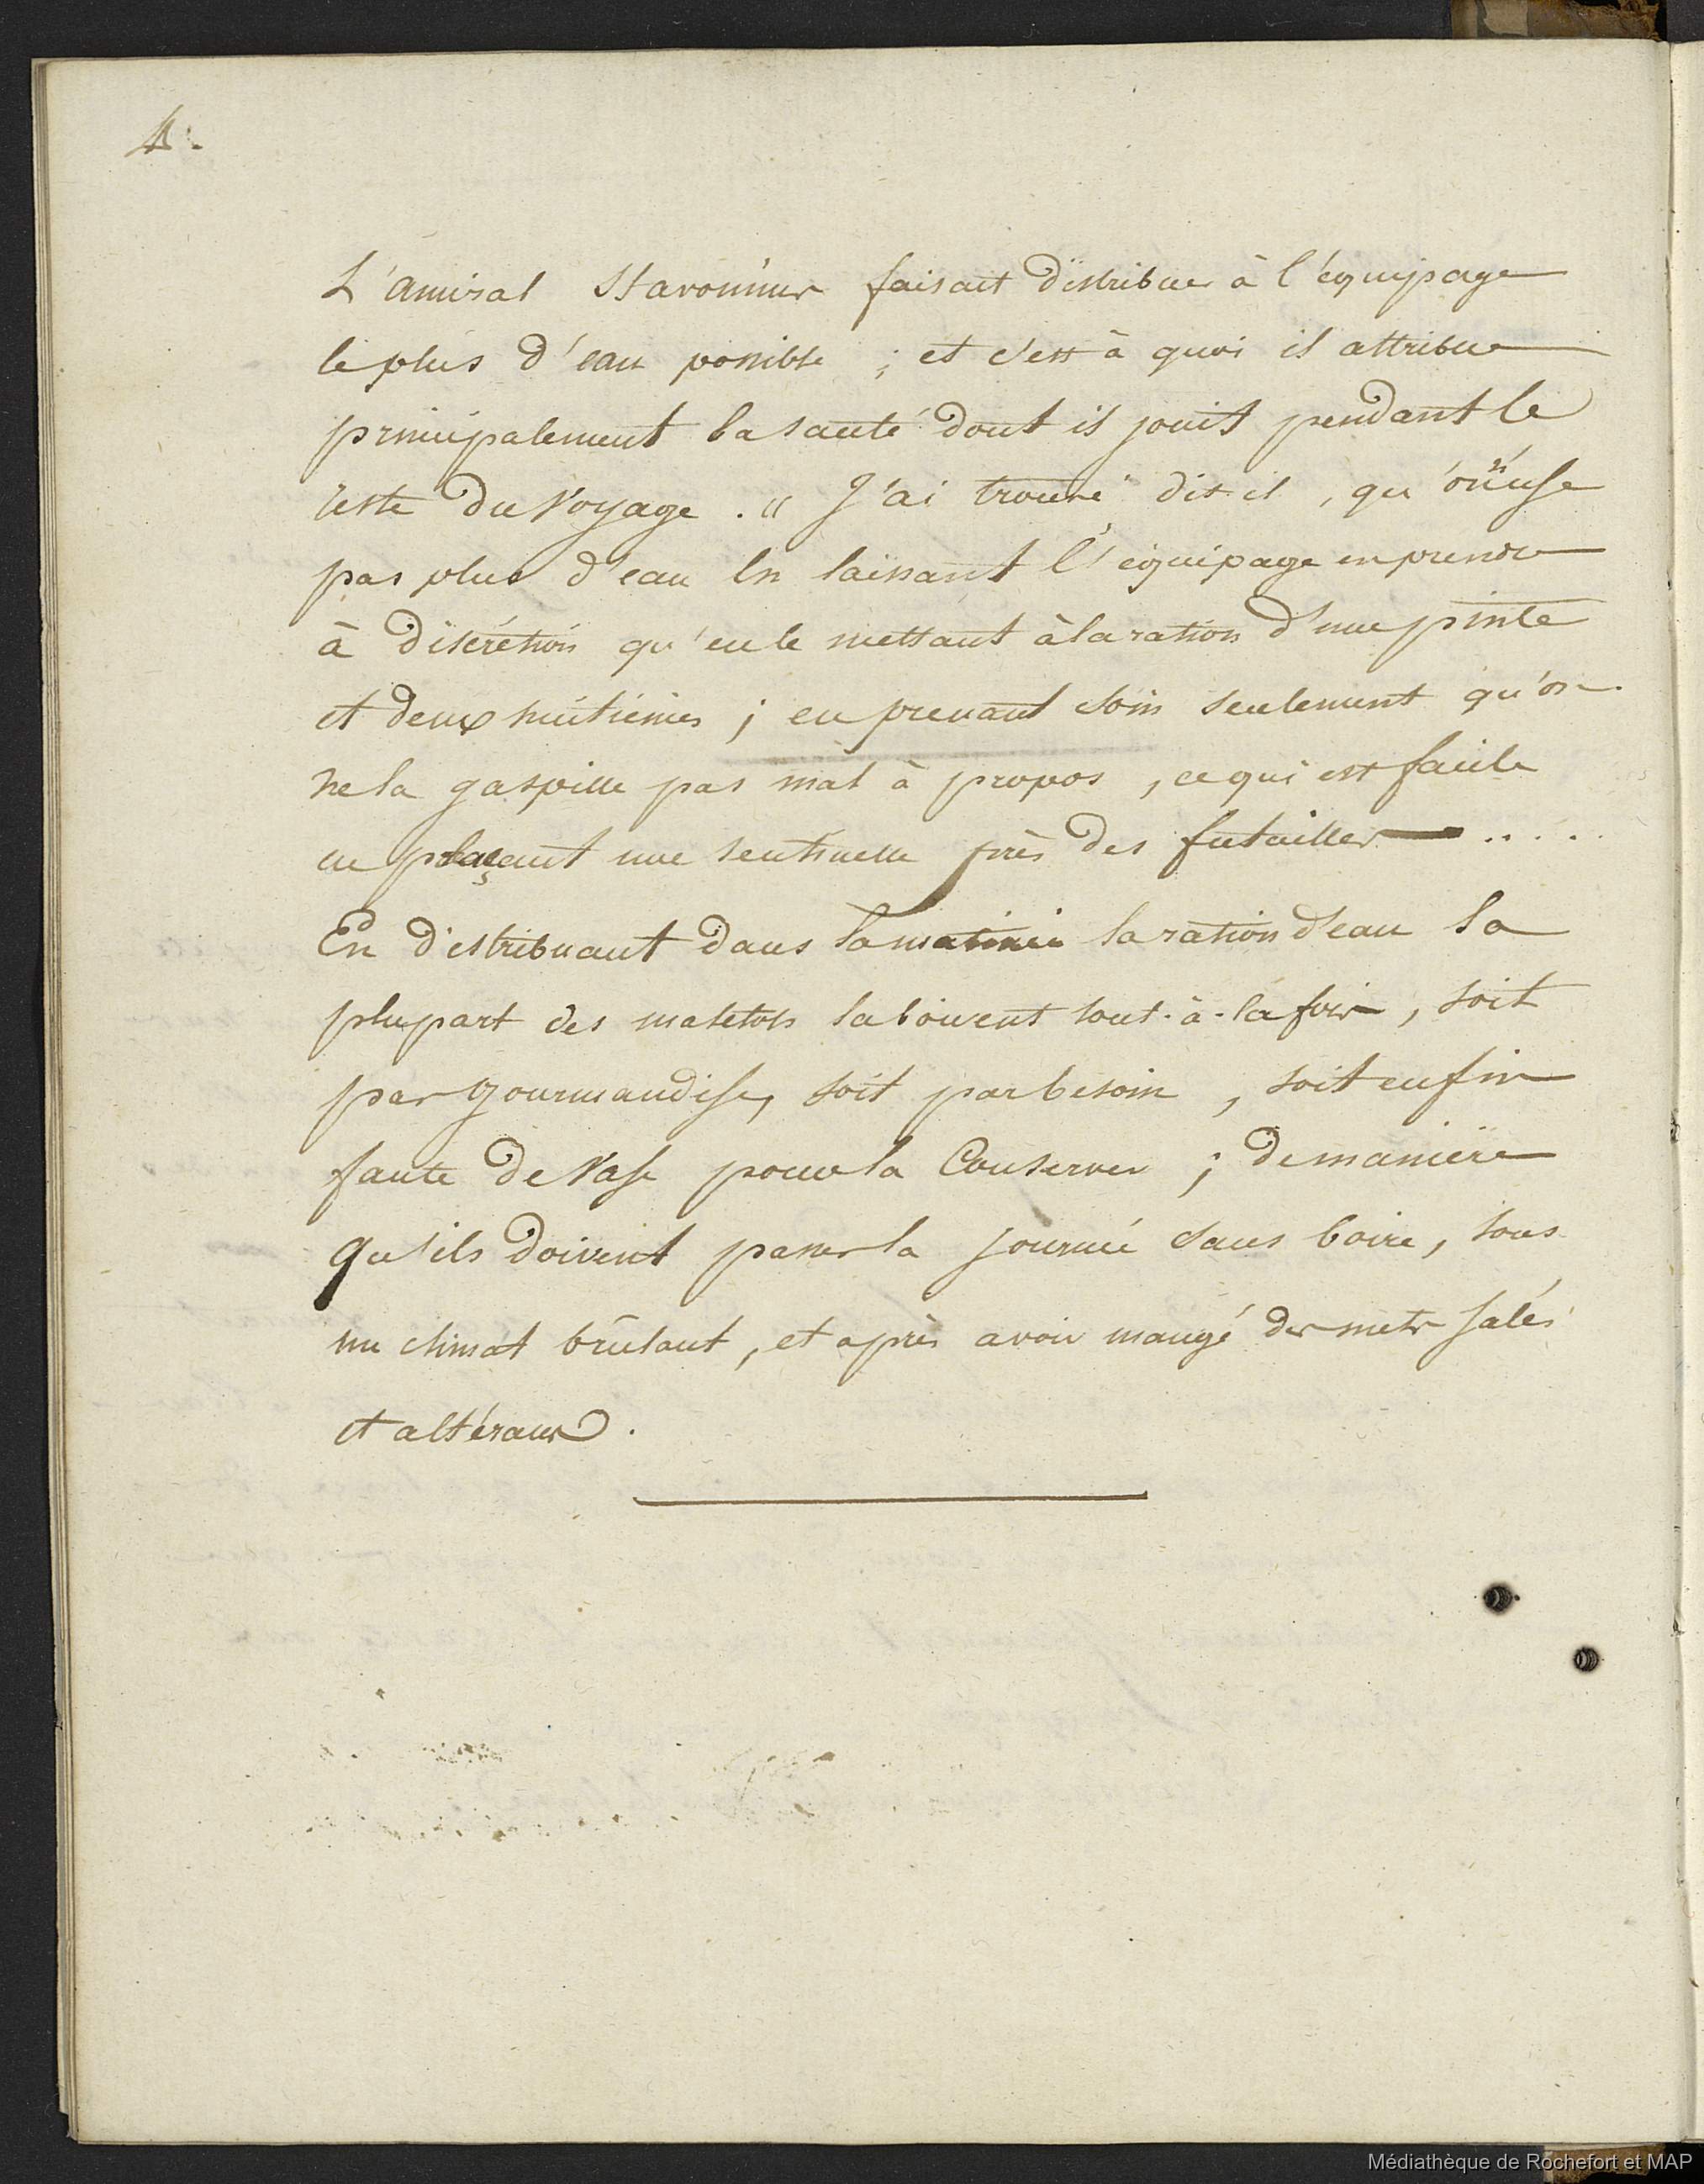 4.
L'amiral Stavorinus faisait distribuer à l'équipage
le plus d'eau possible ; et c'est à quoi il attribue
principalement la santé dont il jouit pendant le
reste du Voyage . " J'ai trouvé dit-il , qu'on n'use
pas plus d'eau en laissant l'équipage en prendre
à discrétion qu'en le mettant à la ration d'une pinte
et deux huitièmes ; en prenant soin seulement qu'on
ne la gaspille pas mal à propos , ce qui est facile
en plaçant une sentinelle près des futailles .....
En distribuant dans la matinée la ration d'eau la
plupart des matelots la boivent tout-à-la fois , soit
par gourmandise, soit par besoin , soit enfin
faute de Vase pour la Conserver ; de manière
qu'ils doivent passer la journée sans boire, sous
un climat brûlant, et après avoir mangé des mets salés
et altérans .
Médiathèque de Rochefort et MAP